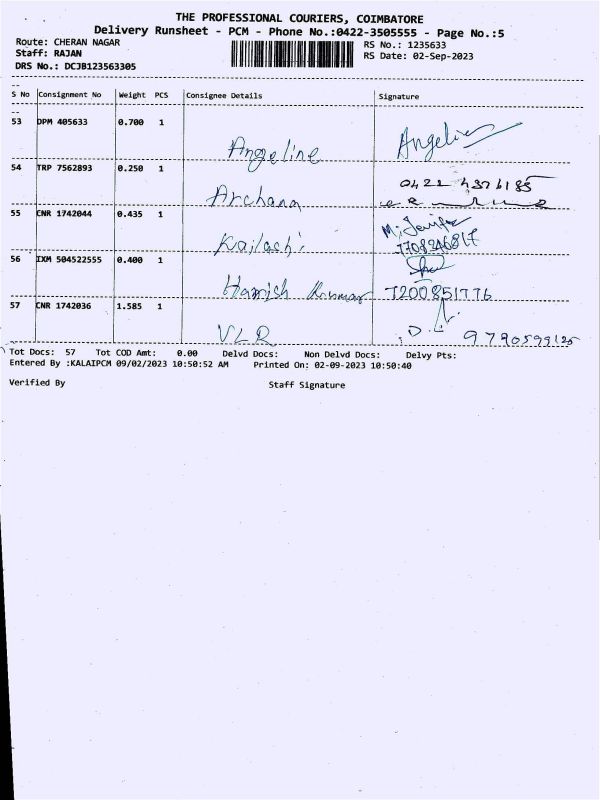 THE PROFESSIONAL COURIERS, COIMBATORE
Delivery Runsheet - PCM - Phone No.:0422-3505555 - Page No.:5
Route: CHERAN NAGAR
RS No.: 1235633
Staff: RAJAN
RS Date: 02-Sep-2023
DRS No.: DCJB123563305
S No Consignment No Weight PCS Consignee Details Signature
53 DPM 405633 0.700 1
Angeline Angeline
54 TRP 7562893 0.250 1
Archana
55 CNR 1742044 0.435 1
Kailash
56 IXM 504522555 0.400 1
Hamish Kumar 7200851776
57 CNR 1742036 1.585 1
VLR 9790599125
Tot Docs: 57 Tot COD Amt: 0.00 Delvd Docs: Non Delvd Docs: Delvy Pts:
Entered By :KALAIPCM 09/02/2023 10:50:52 AM Printed On: 02-09-2023 10:50:40
Verified By Staff Signature